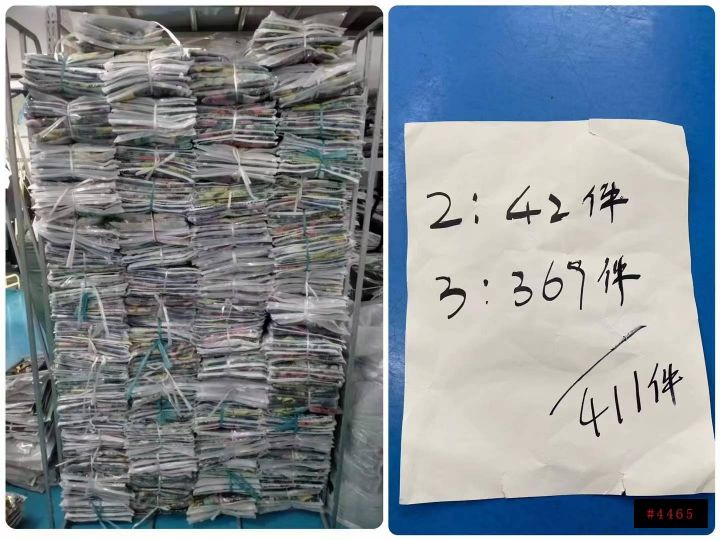 2: 42件
3: 369件
411件
#4465